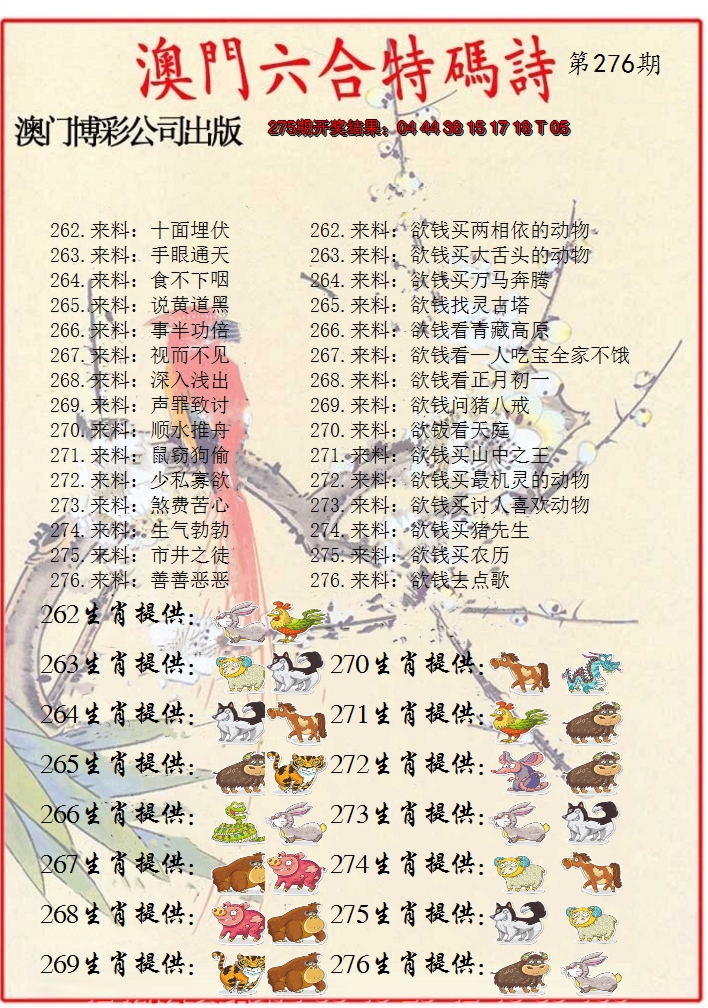 澳門六合特碼詩 第276期
澳门博彩公司出版 275期开奖结果：04 44 38 15 17 18 T 05
262.来料：十面埋伏 262.来料：欲钱买两相依的动物
263.来料：手眼通天 263.来料：欲钱买大舌头的动物
264.来料：食不下咽 264.来料：欲钱买万马奔腾
265.来料：说黄道黑 265.来料：欲钱找灵古塔
266.来料：事半功倍 266.来料：欲钱看青藏高原
267.来料：视而不见 267.来料：欲钱看一人吃宝全家不饿
268.来料：深入浅出 268.来料：欲钱看正月初一
269.来料：声罪致讨 269.来料：欲钱问猪八戒
270.来料：顺水推舟 270.来料：欲钱看天庭
271.来料：鼠窃狗偷 271.来料：欲钱买山中之王
272.来料：少私寡欲 272.来料：欲钱买最机灵的动物
273.来料：煞费苦心 273.来料：欲钱买讨人喜欢动物
274.来料：生气勃勃 274.来料：欲钱买猪先生
275.来料：市井之徒 275.来料：欲钱买农历
276.来料：善善恶恶 276.来料：欲钱去点歌
262生肖提供：
263生肖提供： 270生肖提供：
264生肖提供： 271生肖提供：
265生肖提供： 272生肖提供：
266生肖提供： 273生肖提供：
267生肖提供： 274生肖提供：
268生肖提供： 275生肖提供：
269生肖提供： 276生肖提供：